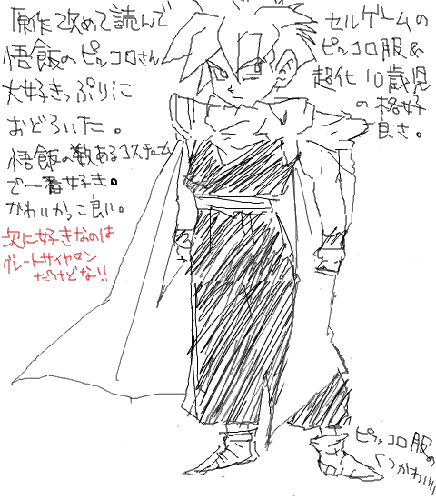 原作改めて読んで
悟飯のピッコロさん
大好きっぷりに
おどろいた。
悟飯の数あるコスチューム
で一番好き。
かわいかっこ良い。
次に好きなのは
グレートサイヤマン
だけどな!!
セルゲームの
ピッコロ服&
超化10歳児
の格好
良さ。
ピッコロ服の
くつかわいい